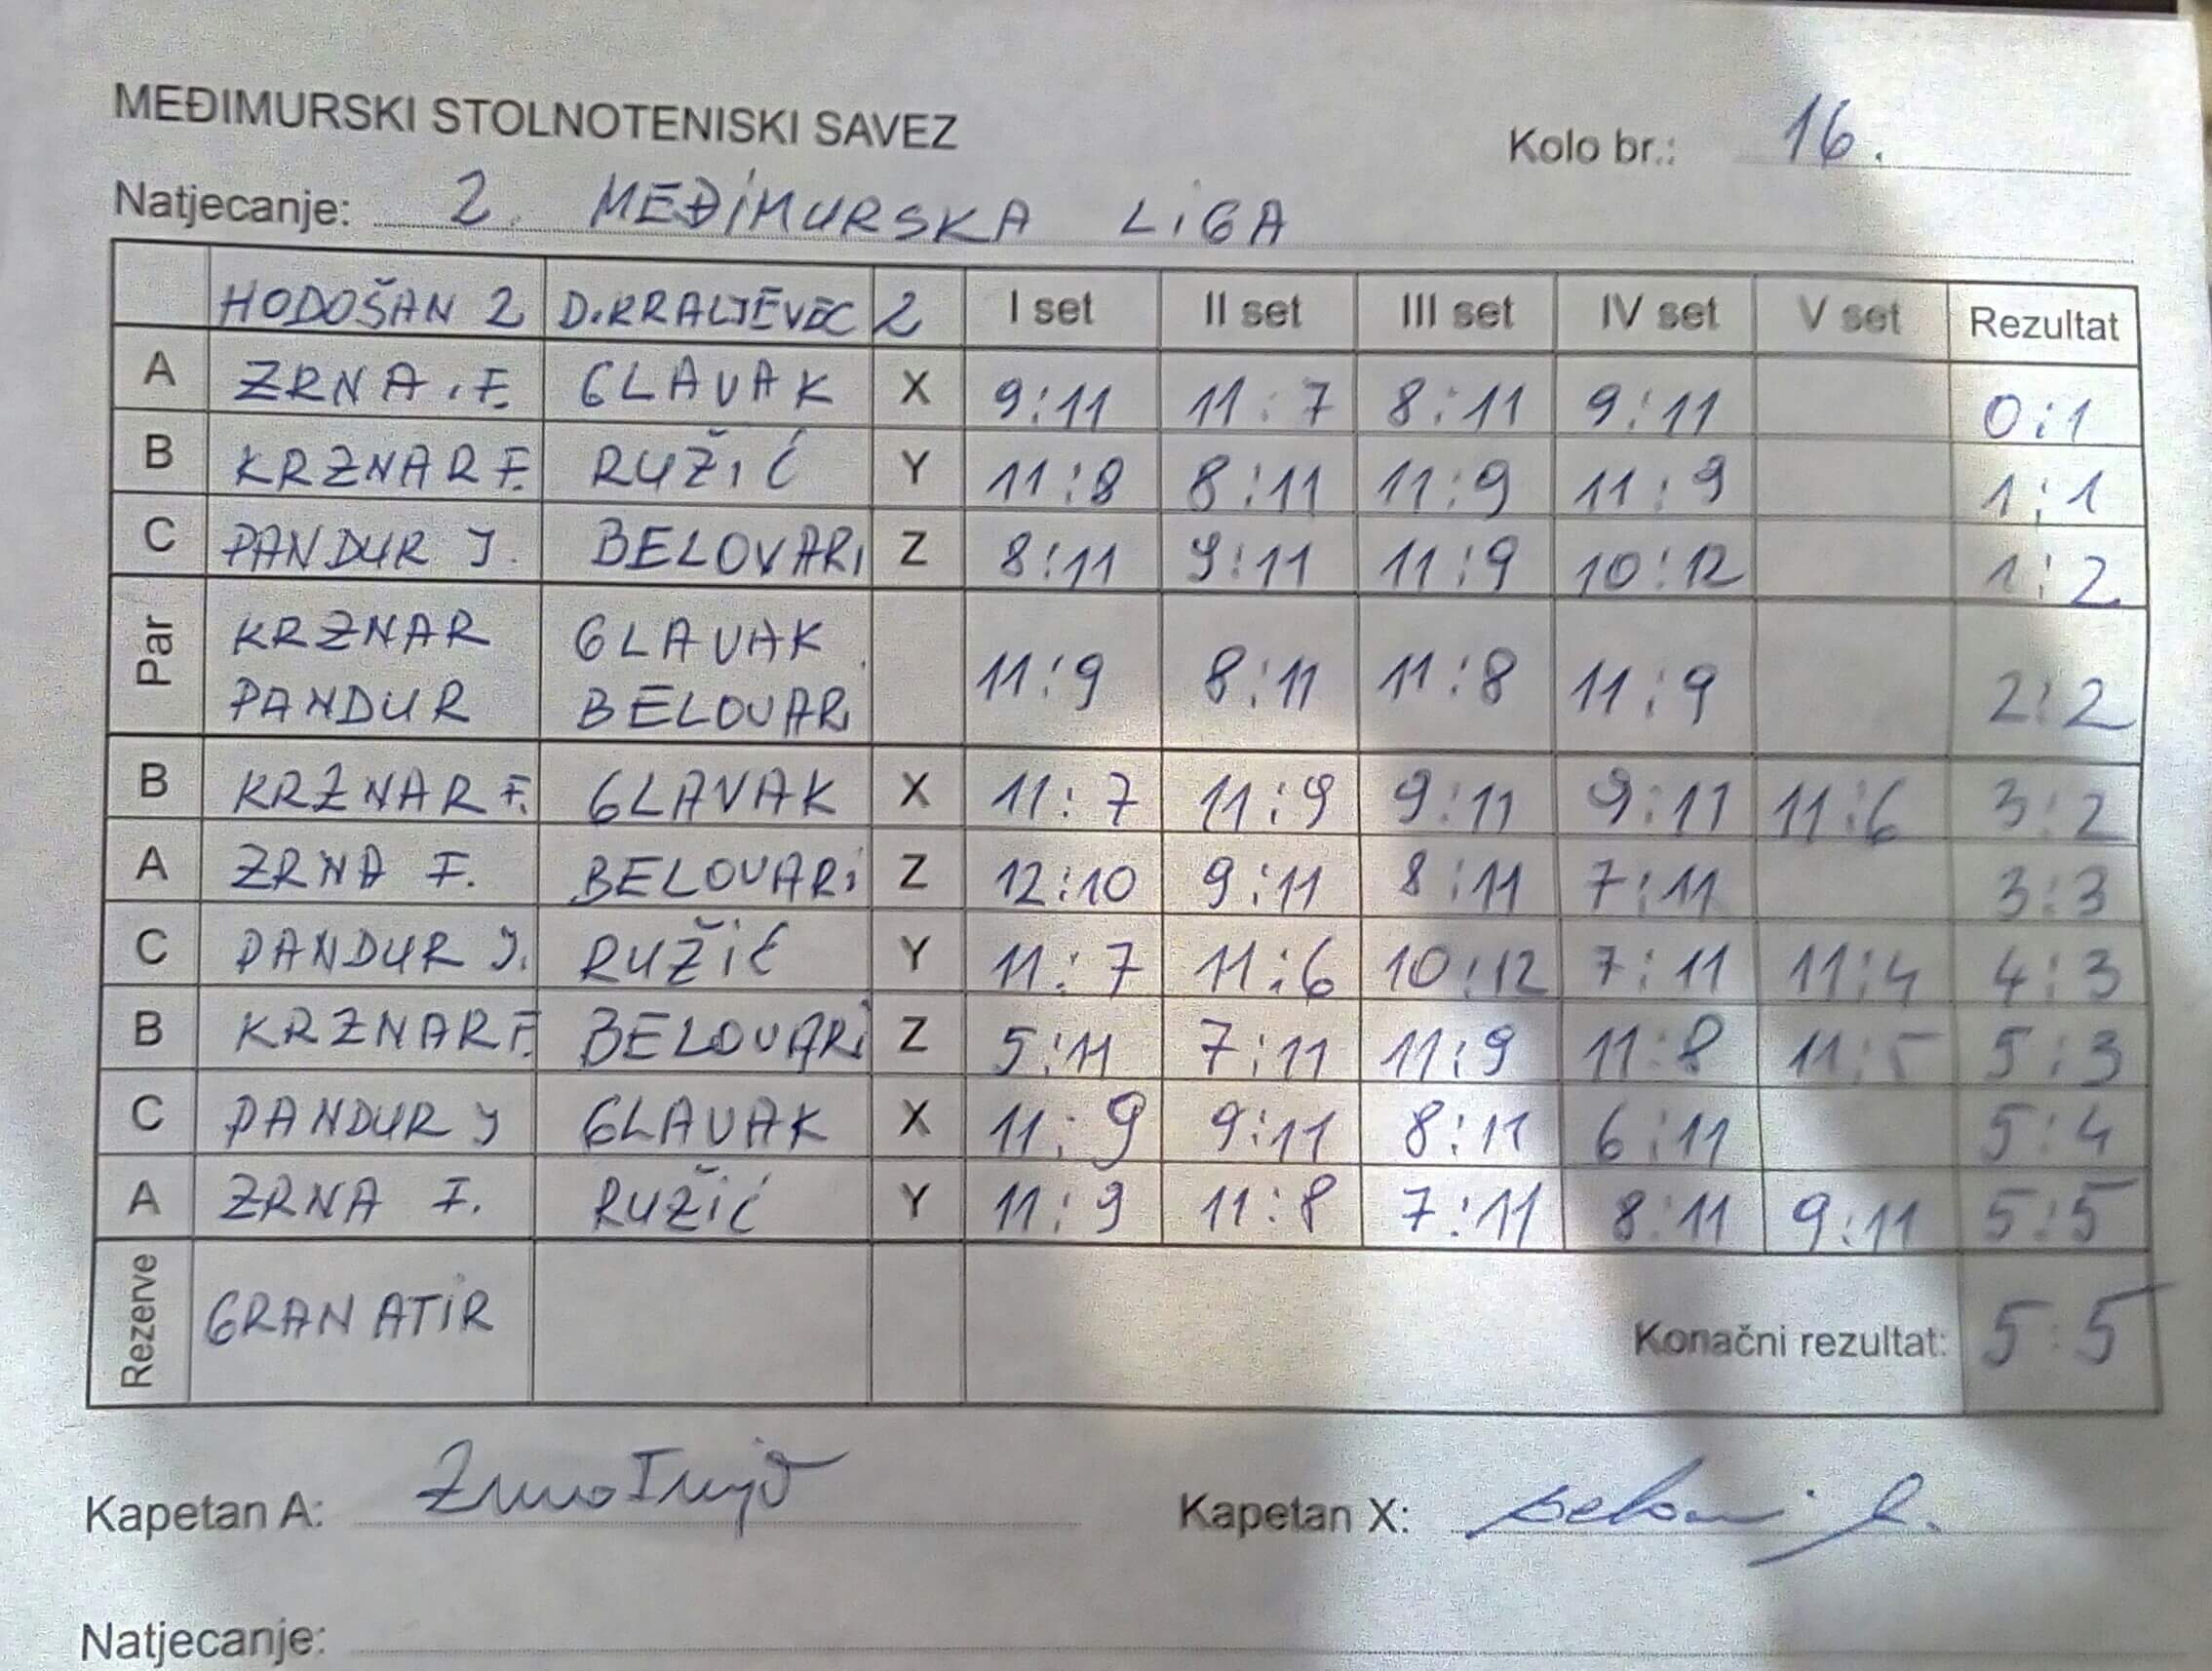 MEĐIMURSKI STOLNOTENISKI SAVEZ
Kolo br.: 16.
Natjecanje: 2. MEĐIMURSKA LIGA
HODOŠAN 2 D.KRALJEVEC 2 I set II set III set IV set V set Rezultat
A ZRNA .F. GLAVAK X 9:11 11:7 8:11 9:11 0:1
B KRZNAR F. RUŽIĆ Y 11:8 8:11 11:9 11:9 1:1
C PANDUR J. BELOVARI Z 8:11 9:11 11:9 10:12 1:2
Par KRZNAR GLAVAK
PANDUR BELOVARI 11:9 8:11 11:8 11:9 2:2
B KRZNAR F. GLAVAK X 11:7 11:9 9:11 9:11 11:6 3:2
A ZRNA F. BELOVARI Z 12:10 9:11 8:11 7:11 3:3
C PANDUR J. RUŽIĆ Y 11:7 11:6 10:12 7:11 11:4 4:3
B KRZNAR F. BELOVARI Z 5:11 7:11 11:9 11:8 11:5 5:3
C PANDUR J GLAVAK X 11:9 9:11 8:11 6:11 5:4
A ZRNA F. RUŽIĆ Y 11:9 11:8 7:11 8:11 9:11 5:5
Rezerve GRANATIR Konačni rezultat: 5:5
Kapetan A: Kapetan X:
Natjecanje: